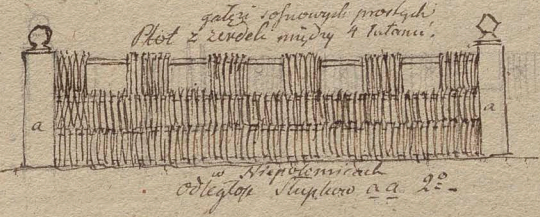 gałęzi sosnowych prostych
Płot z żerdeli między 4 łatami.
a
a
w Niepołomicach
Odległość Słupków a a 2°